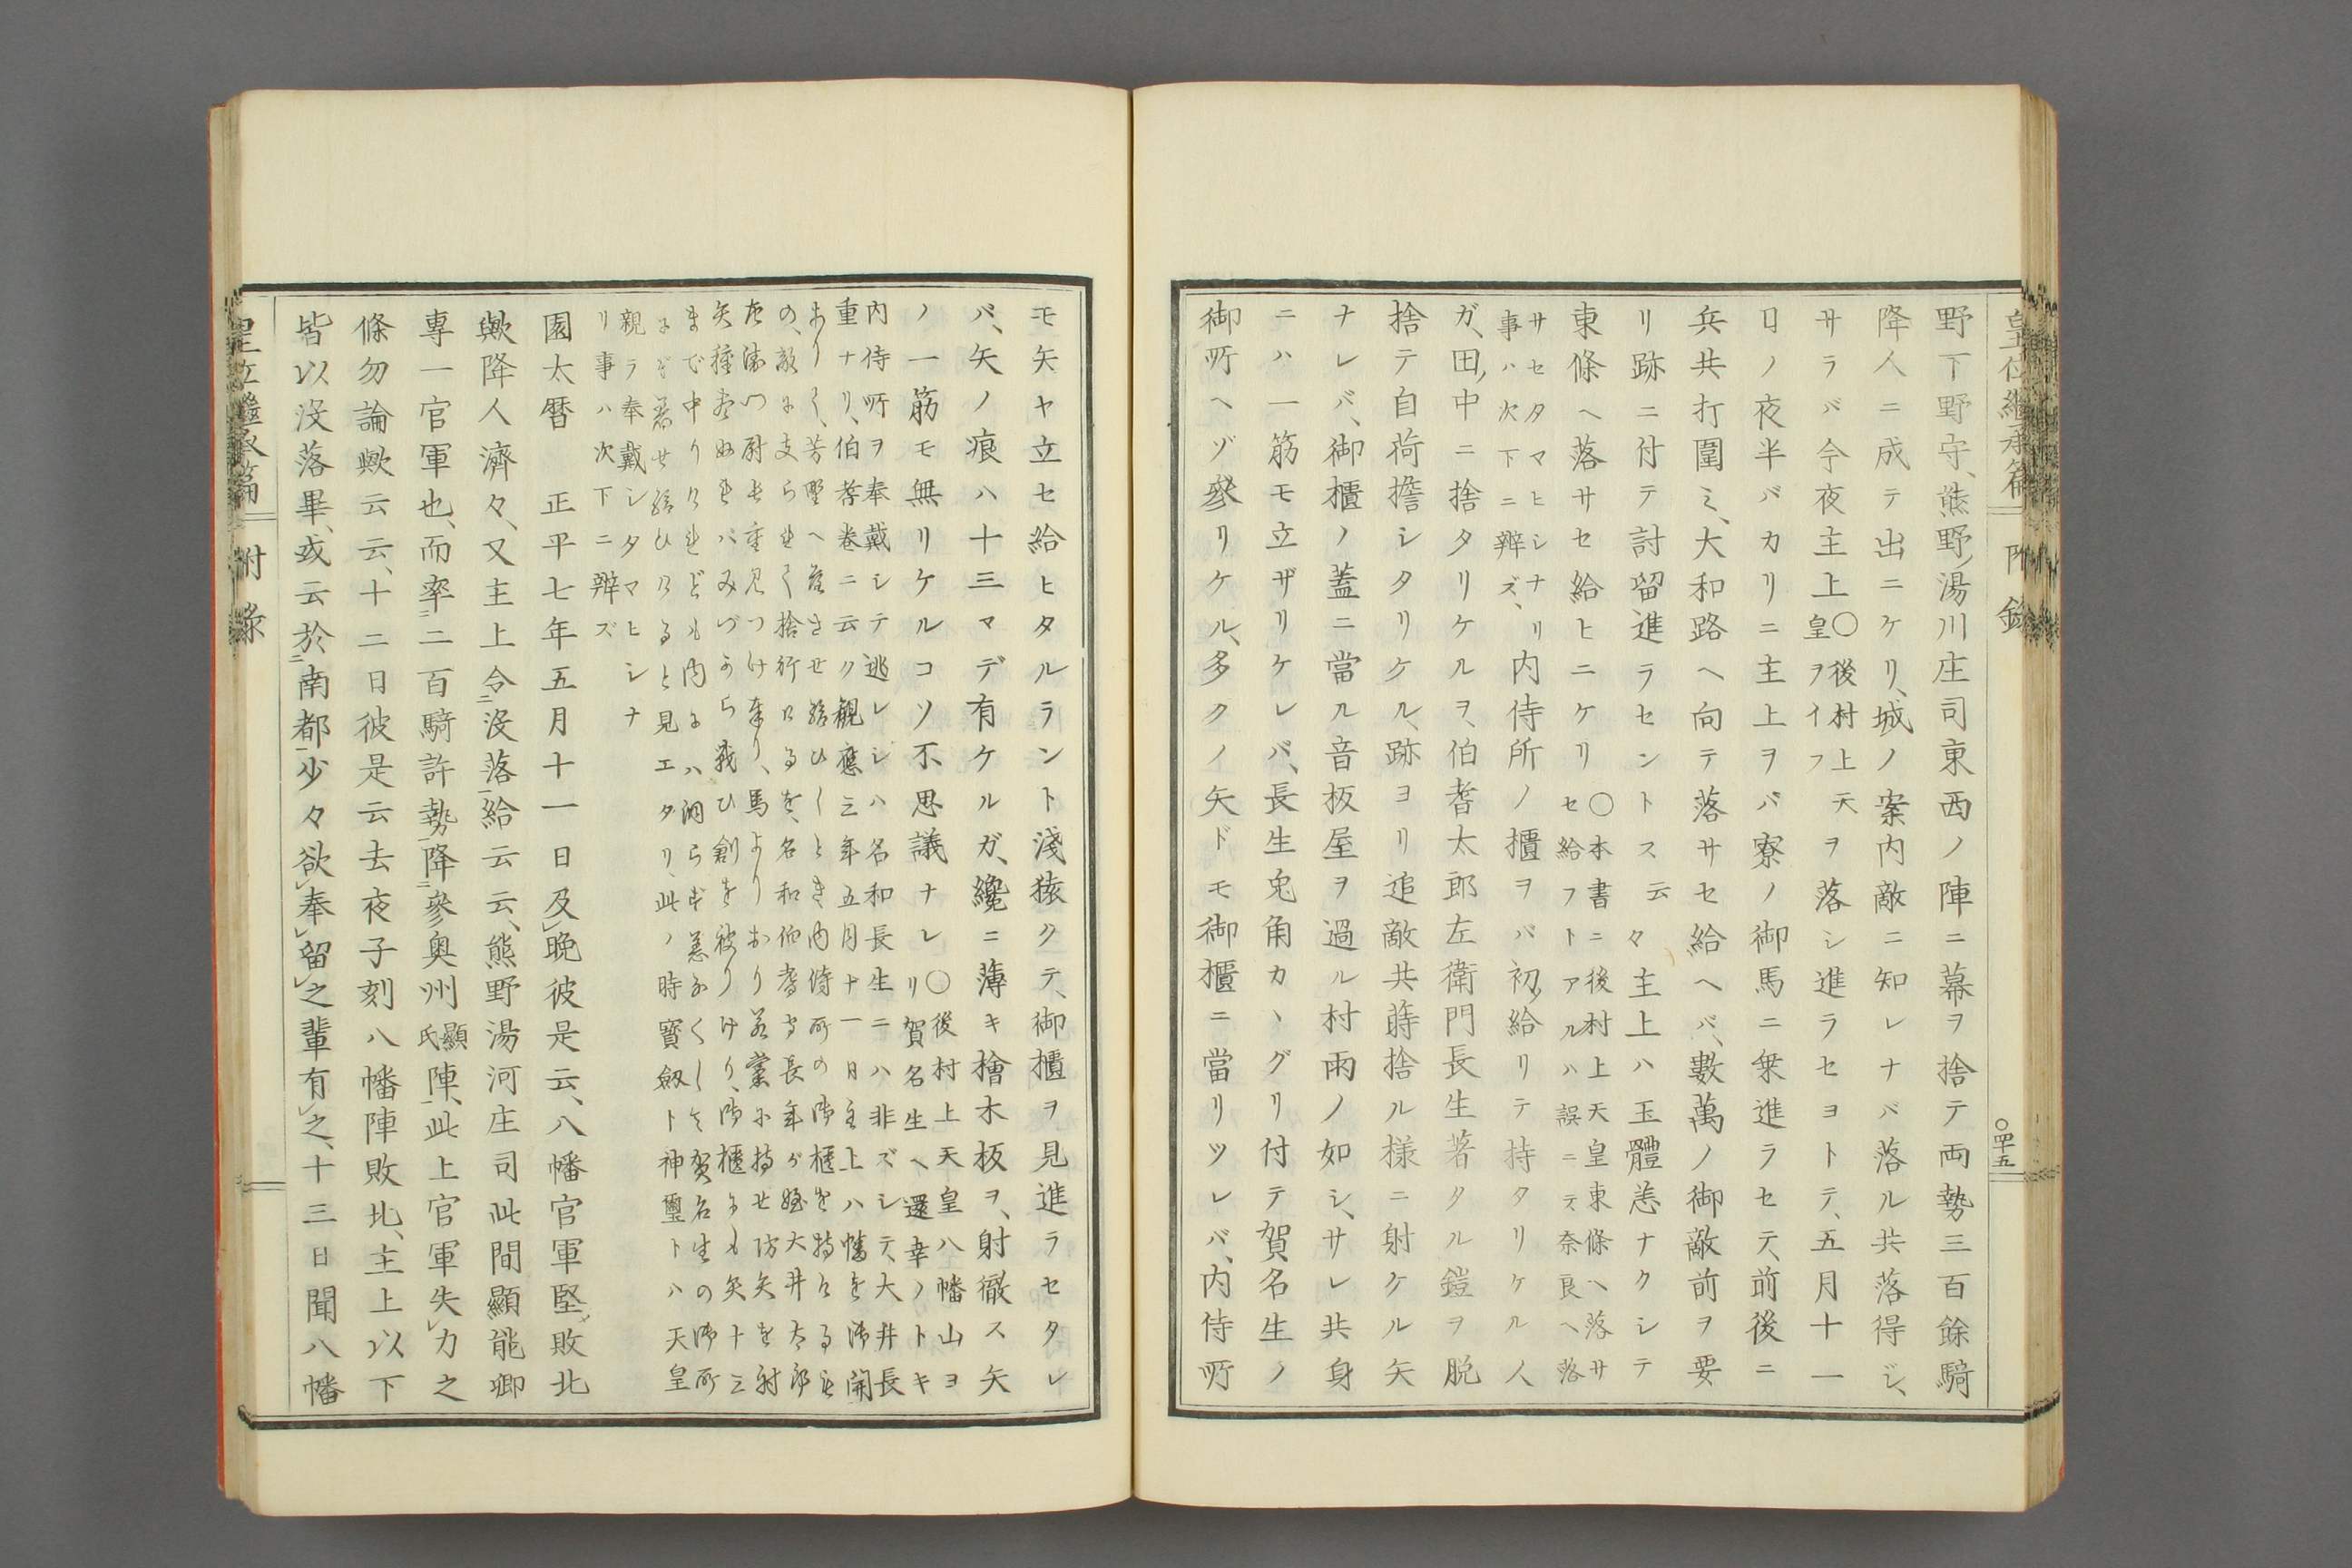 皇位繼承篇　附錄
〇四十五
野下野守、熊野ノ湯川庄司東西ノ陣ニ幕ヲ捨テ両勢三百餘騎
降人ニ成テ出ニケリ、城ノ案内敵ニ知レナバ落ル共落得ジ、
サラバ今夜主上〇後村上天皇ヲイフヲ落シ進ラセヨトテ、五月十一
日ノ夜半バカリニ主上ヲバ寮ノ御馬ニ乗進ラセテ、前後ニ
兵共打圍ミ、大和路ヘ向テ落サセ給ヘバ、數萬ノ御敵前ヲ要
リ跡ニ付テ討留進ラセントス云々主上ハ玉體恙ナクシテ
東條ヘ落サセ給ヒニケリ〇本書ニ後村上天皇東條ヘ落サセ給フトアルハ誤ニテ奈良ヘ落
サセタマヒシナリ事ハ次下ニ辨ズ、内侍所ノ櫃ヲバ初ノ給リテ持タリケル人
ガ、田ノ中ニ捨タリケルヲ、伯耆太郎左衛門長生著タル鎧ヲ脱
捨テ自荷擔シタリケル、跡ヨリ追敵共蒔捨ル樣ニ射ケル矢
ナレバ、御櫃ノ蓋ニ當ル音板屋ヲ過ル村雨ノ如シ、サレ共身
ニハ一筋モ立ザリケレバ、長生兎角カヽグリ付テ賀名生ノ
御所ヘゾ參リケル、多クノ矢ドモ御櫃ニ當リツレバ、内侍所
モ矢ヤ立セ給ヒタルラント淺猿クテ、御櫃ヲ見進ラセタレ
バ、矢ノ痕ハ十三マデ有ケルガ、纔ニ薄キ檜木板ヲ、射徹ス矢
ノ一筋モ無リケルコソ不思議ナレ〇後村上天皇八幡山ヨリ賀名生ヘ還幸ノトキ
内侍所ヲ奉戴シテ逃レシハ名和長生ニハ非ズシテ、大井長
重ナリ、伯耆卷ニ云ク觀應三年五月十一日主上ハ幡を御開
ありて、芳野へ落させ給ひしとき内侍所の御櫃を持ける
の、敵に支られて捨行けるを、名和伯耆守長年が姪大井太郎
左衛門尉長重見つけ奉り、馬よりおり若黨に持せ防矢を射
矢種盡ぬればみづから戰ひ創を被りけり、御櫃にも矢十三
まで中りけれども内には洞らず恙なくして賀名生の御所
に著せ給ひけると見エタリ、此ノ時寶劔ト神璽トハ天皇
親ラ奉戴シタマヒシナ
リ事ハ次下ニ辨ズ
園太暦　正平七年五月十一日及晩彼是云、八幡官軍堅敗北
歟降人濟々、又主上令沒落給云云、熊野湯河庄司此間顯能卿
專一官軍也、而率二百騎許勢降參奥州顯氏陣、此上官軍失力之
條勿論歟云云、十二日彼是云去夜子刻八幡陣敗北、主上以下
皆以沒落畢、或云於南都少々欲奉留之輩有之、十三日聞八幡
皇位繼承篇　附錄